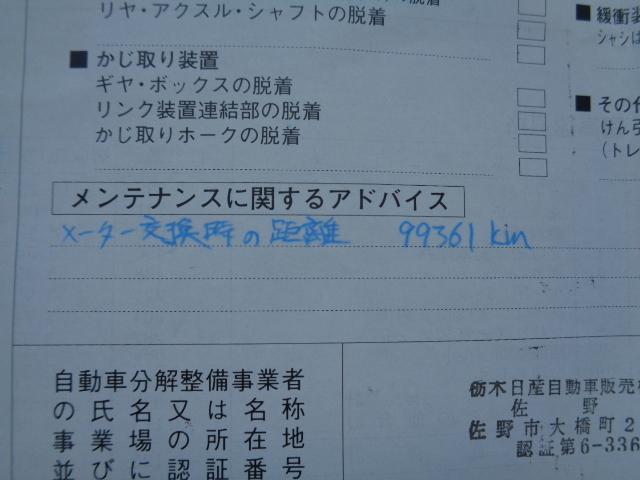 リヤ・アクスル・シャフトの脱着
■ かじ取り装置
ギヤ・ボックスの脱着
リンク装置連結部の脱着
かじ取りホークの脱着
■ 緩衝装
シャシは
■ その他
けん引
(トレ
メンテナンスに関するアドバイス
メーター交換時の距離 99361 km
自動車分解整備事業者
の氏名又は名称
事業場の所在地
並びに認証番号
栃木日産自動車販売
佐野
佐野市大橋町2
認証第6-336